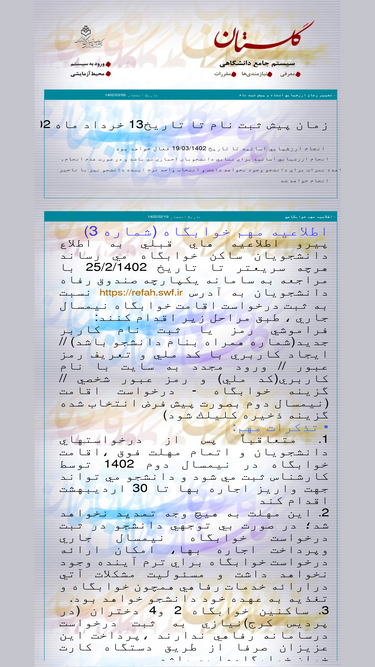 گلستان
سیستم جامع دانشگاهی
معرفی نیازمندی‌ها مقررات
ورود به سیستم
محیط آزمایشی
زمان پیش ثبت نام تا تاریخ13 خرداد ماه 02
انجام ارزشیابی اساتید تا تاریخ 19/03/1402 فعال خواهد بود
انجام ارزشیابی اساتید برای تمامی دانشجویان اجباری می باشد و درصورت عدم انجام،
انجام خواهد شد
اطلاعیه مهم خوابگاهی
اطلاعیه مهم خوابگاه (شماره 3)
پیرو اطلاعیه های قبلی به اطلاع
دانشجویان ساکن خوابگاه می رساند
هرچه سریعتر تا تاریخ 25/2/1402 با
مراجعه به سامانه یکپارچه صندوق رفاه
دانشجویان به آدرس https://refah.swf.ir نسبت
به ثبت درخواست اقامت خوابگاه نیمسال
جاری ، طبق مراحل زیر اقدام کنند:
فراموشی رمز یا ثبت نام کاربر
جدید(شماره همراه بنام دانشجو باشد) //
ایجاد کاربری با کد ملی و تعریف رمز
عبور // ورود مجدد به سایت با نام
کاربری(کد ملی) و رمز عبور شخصی //
گزینه خوابگاه - درخواست اقامت
(نیمسال دوم بصورت پیش فرض انتخاب شده
گزینه ذخیره کلیک شود)
* تذکرات مهم:
1. متعاقباً پس از درخواستهای
دانشجویان و اتمام مهلت فوق ،اقامت
خوابگاه در نیمسال دوم 1402 توسط
کارشناس ثبت می شود و دانشجو می تواند
جهت واریز اجاره بها تا 30 اردیبهشت
اقدام کند
2. این مهلت به هیچ وجه تمدید نخواهد
شد؛ در صورت بی توجهی دانشجو در ثبت
درخواست خوابگاه نیمسال جاری
وپرداخت اجاره بها، امکان ارائه
درخواست خوابگاه برای ترم آینده وجود
نخواهد داشت و مسئولیت مشکلات آتی
درارائه خدمات رفاهی همچون خوابگاه و
تغذیه به عهده خود دانشجو خواهد بود.
3. ساکنین خوابگاه 2 و4 دختران (در
پردیس کرج)نیازی به ثبت درخواست
درسامانه رفاهی ندارند ،پرداخت این
عزیزان صرفا از طریق دستگاه کارت